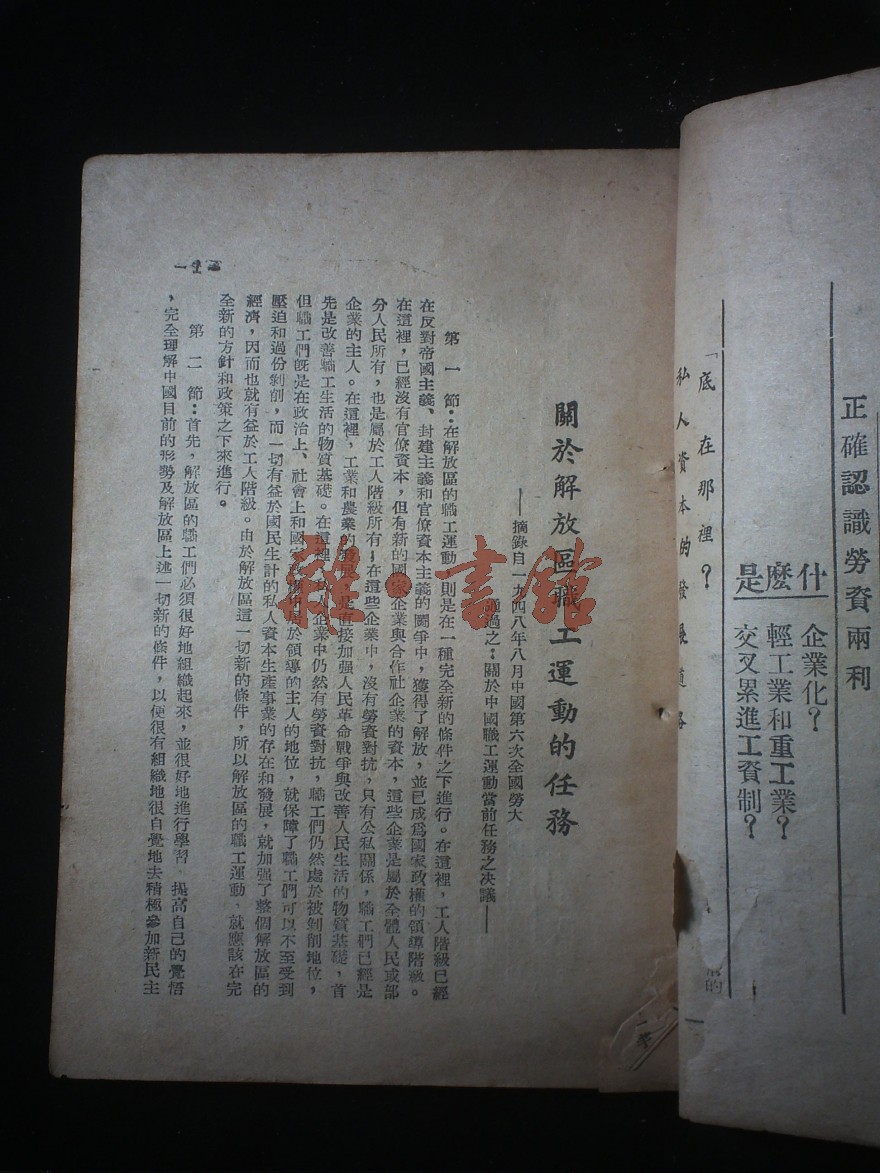 正確認識勞資兩利
什麼是
企業化?
輕工業和重工業?
交叉累進工資制?
「底 在那裡?
私人資本的發展道路
的
關於解放區職工運動的任務
——摘錄自一九四八年八月中國第六次全國勞大
通過之:關於中國職工運動當前任務之决議——
第一節:在解放區的職工運動,則是在一種完全新的條件之下進行。在這裡,工人階級已經
在反對帝國主義、封建主義和官僚資本主義的鬪爭中,獲得了解放,並已成爲國家政權的領導階級。
在這裡,已經沒有官僚資本,但有新的國家企業與合作社企業的資本,這些企業是屬於全體人民或部
分人民所有,也是屬於工人階級所有;在這些企業中,沒有勞資對抗,只有公私關係,職工們已經是
企業的主人。在這裡,工業和農業的發展,是直接加强人民革命戰爭與改善人民生活的物質基礎,首
先是改善職工生活的物質基礎。在這裡,私人企業中仍然有勞資對抗,職工們仍然處於被剝削地位,
但職工們旣是在政治上、社會上和國家 居於領導的主人的地位,就保障了職工們可以不至受到
壓迫和過份剝削,而一切有益於國民生計的私人資本生產事業的存在和發展,就加强了整個解放區的
經濟,因而也就有益於工人階級。由於解放區這一切新的條件,所以解放區的職工運動、就應該在完
全新的方針和政策之下來進行。
第二節:首先,解放區的職工們必須很好地組織起來,並很好地進行學習、提高自己的覺悟
,完全理解中國目前的形勢及解放區上述一切新的條件,以便很有組織地很自覺地去積極參加新民主
一
雜·書館